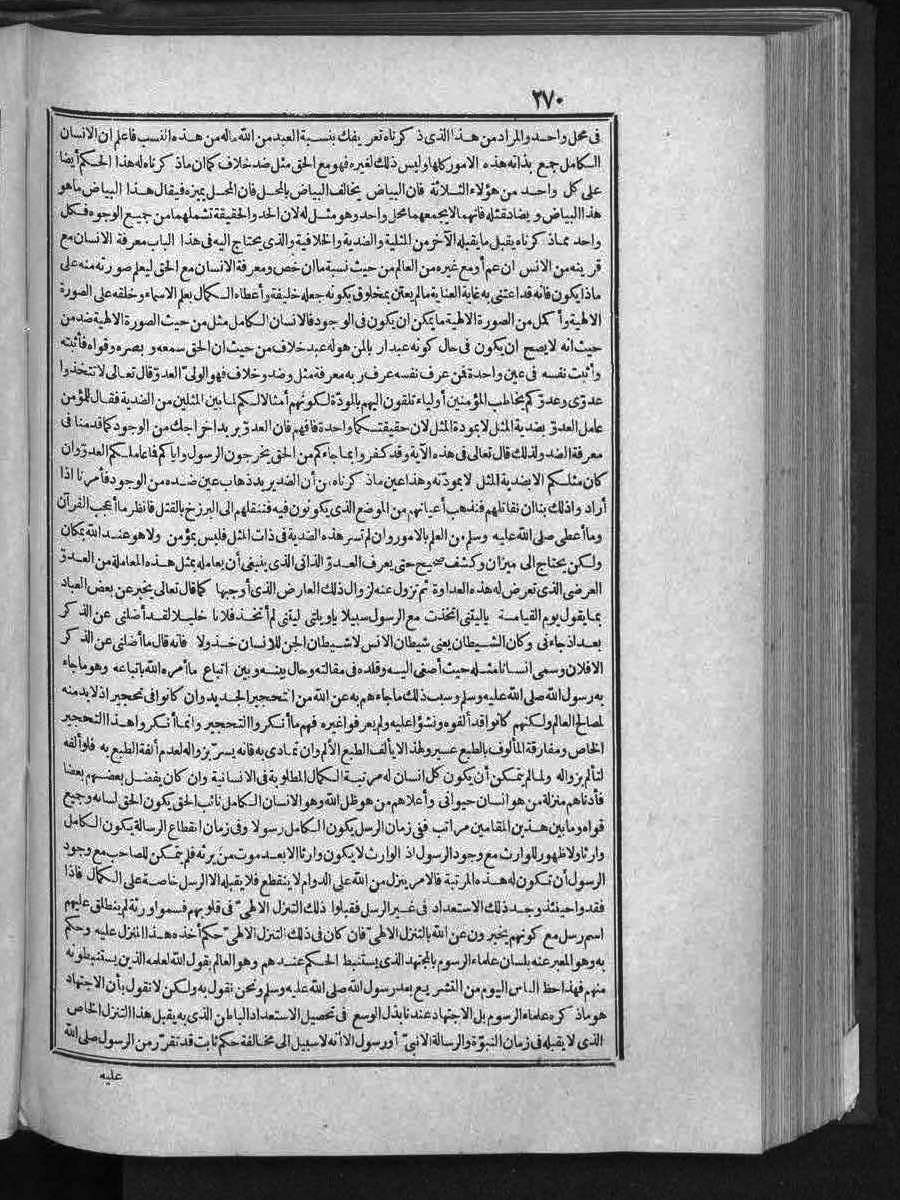 ٢٧٠
في محل واحد والمراد من هذا الذي ذكرناه تعريفك بنسبة العبد من الله ماله من هذه النسب فاعلم ان الانسان
الكامل جمع بذاته هذه الامور كلها وليس ذلك لغيره فهو مع الحق مثل ضد خلاف كما ان ما ذكرناه له هذا الحكم أيضا
على كل واحد من هؤلاء الثلاثة فان البياض يخالف البياض بالمحل فان المحل يميزه فيقال هذا البياض ماهو
هذا البياض ويضاد مثله فانهما لا يجمعهما محل واحد وهو مثل له لان الحد والحقيقة تشملهما من جميع الوجوه فكل
واحد مما ذكرناه يقبل ما يقبله الآخر من المثلية والضدية والخلافية والذي يحتاج اليه في هذا الباب معرفة الانسان مع
قرينه من الانس ان عم أو مع غيره من العالم من حيث نسبة ما ان خص ومعرفة الانسان مع الحق ليعلم صورته منه على
ماذا يكون فانه قد اعتنى به غاية العناية ما لم يعتن بمخلوق بكونه جعله خليفة وأعطاه الكمال بعلم الاسماء وخلقه على الصورة
الالهية وأكمل من الصورة الالهية ما يمكن ان يكون في الوجود فالانسان الكامل مثل من حيث الصورة الالهية ضد من
حيث انه لا يصح ان يكون في حال كونه عبدا ربا لمن هو له عبد خلاف من حيث ان الحق سمعه وبصره وقواه فأثبته
وأثبت نفسه في عين واحدة فمن عرف نفسه عرف ربه معرفة مثل وضد وخلاف فهو الولي العدو قال تعالى لا تتخذوا
عدوي وعدوكم يخاطب المؤمنين أولياء تلقون اليهم بالمودة لكونهم أمثالا لكم لما بين المثلين من الضدية فقال للمؤمن
عامل العدو بضدية المثل لا بمودة المثل لان حقيقتكما واحدة فافهم فان العدو يريد اخراجك من الوجود كما قدمنا في
معرفة الضد ولذلك قال تعالى في هذه الآية وقد كفروا بما جاءكم من الحق يخرجون الرسول واياكم فاعاملكم العدو وان
كان مثلكم الا بضدية المثل لا بمودته وهذا عين ما ذكرناه من أن الضد يريد ذهاب عين ضده من الوجود فأمرنا اذا
أرادوا ذلك بنا ان نقاتلهم فنذهب أعيانهم من الموضع الذي يكونون فيه فننقلهم الى البرزخ بالقتل فانظر ما أعجب القرآن
وما أعطى صلى الله عليه وسلم من العلم بالامور وان لم تسر هذه الضدية في ذات المثل فليس بمؤمن ولا هو عند الله بمكان
ولكن يحتاج الى ميزان وكشف صحيح حتى يعرف العدو الذاتي الذي ينبغي أن يعامله بمثل هذه المعاملة من العدو
العرضي الذي تعرض له هذه العداوة ثم تزول عنه لزوال ذلك العارض الذي أوجبها كما قال تعالى يخبر عن بعض العباد
بما يقول يوم القيامة ياليتني اتخذت مع الرسول سبيلا ياويلتي ليتني لم أتخذ فلانا خليلا لقد أضلني عن الذكر
بعد اذ جاءني وكان الشيطان يعني شيطان الانس لا شيطان الجن للانسان خذولا فانه قال ما أضلني عن الذكر
الا فلان وسمى انسانا مثله حيث أصغى اليه وقلده في مقالته وحال بينه وبين اتباع ما أمره الله باتباعه وهو ما جاء
به رسول الله صلى الله عليه وسلم وسبب ذلك ما جاءهم به عن الله من التحجير الجديد وان كانوا في تحجير اذ لا بد منه
لمصالح العالم ولكنهم كانوا قد ألفوه ونشؤا عليه ولم يعرفوا غيره فهم ما أنكروا التحجير وانما أنكروا هذا التحجير
الخاص ومفارقة المألوف بالطبع عسير ولهذا لا يألف الطبع الألم وان تمادى به فانه يسر بزواله لعدم ألفة الطبع به فلو ألفه
لتألم بزواله ولما لم يتمكن أن يكون كل انسان له مرتبة الكمال المطلوبة في الانسانية وان كان يفضل بعضهم بعضا
فأدناهم منزلة من هو انسان حيواني وأعلاهم من هو ظل الله وهو الانسان الكامل نائب الحق يكون الحق لسانه وجميع
قواه وما بين هذين المقامين مراتب ففي زمان الرسل يكون الكامل رسولا وفي زمان انقطاع الرسالة يكون الكامل
وارثا ولا ظهور للوارث مع وجود الرسول اذ الوارث لا يكون وارثا الا بعد موت من يرثه فلم يتمكن للصاحب مع وجود
الرسول أن تكون له هذه المرتبة فالامر ينزل من الله على الدوام لا ينقطع فلا يقبله الا الرسل خاصة على الكمال فاذا
فقدوا حينئذ وجد ذلك الاستعداد في غير الرسل فقبلوا ذلك التنزل الالهي في قلوبهم فسموا ورثة لم ينطلق عليهم
اسم رسل مع كونهم يخبرون عن الله بالتنزل الالهي فان كان في ذلك التنزل الالهي حكم أخذه هذا المنزل عليه وحكم
به وهو المعبر عنه بلسان علماء الرسوم بالمجتهد الذي يستنبط الحكم عندهم وهو العالم بقول الله لعلمه الذين يستنبطونه
منهم فهذا حظ الناس اليوم من التشريع بعد رسول الله صلى الله عليه وسلم ونحن نقول به ولكن لا نقول بأن الاجتهاد
هو ما ذكره علماء الرسوم بل الاجتهاد عندنا بذل الوسع في تحصيل الاستعداد الباطن الذي به يقبل هذا التنزل الخاص
الذي لا يقبله في زمان النبوة والرسالة الا نبي أو رسول الا أنه لا سبيل الى مخالفة حكم ثابت قد تقرر من الرسول صلى الله
عليه